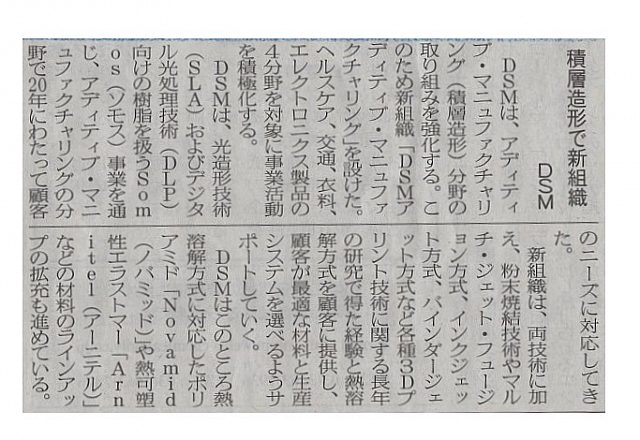 積層造形で新組織
DSM
DSMは、アディティ
ブ・マニュファクチャリ
ング(積層造形)分野の
取り組みを強化する。こ
のため新組織「DSMア
ディティブ・マニュファ
クチャリング」を設けた。
ヘルスケア、交通、衣料、
エレクトロニクス製品の
4分野を対象に事業活動
を積極化する。
DSMは、光造形技術
(SLA)およびデジタ
ル光処理技術(DLP)
向けの樹脂を扱うSom
os(ソモス)事業を通
じ、アディティブ・マニ
ュファクチャリングの分
野で20年にわたって顧客
のニーズに対応してき
た。
新組織は、両技術に加
え、粉末焼結技術やマル
チ・ジェット・フュージ
ョン方式、インクジェッ
ト方式、バインダージェ
ット方式など各種3Dプ
リント技術に関する長年
の研究で得た経験と熱溶
解方式を顧客に提供し、
顧客が最適な材料と生産
システムを選べるようサ
ポートしていく。
DSMはこのところ熱
溶解方式に対応したポリ
アミド「Novamid
(ノバミッド)」や熱可塑
性エラストマー「Arn
itel(アーニテル)」
などの材料のラインアッ
プの拡充も進めている。